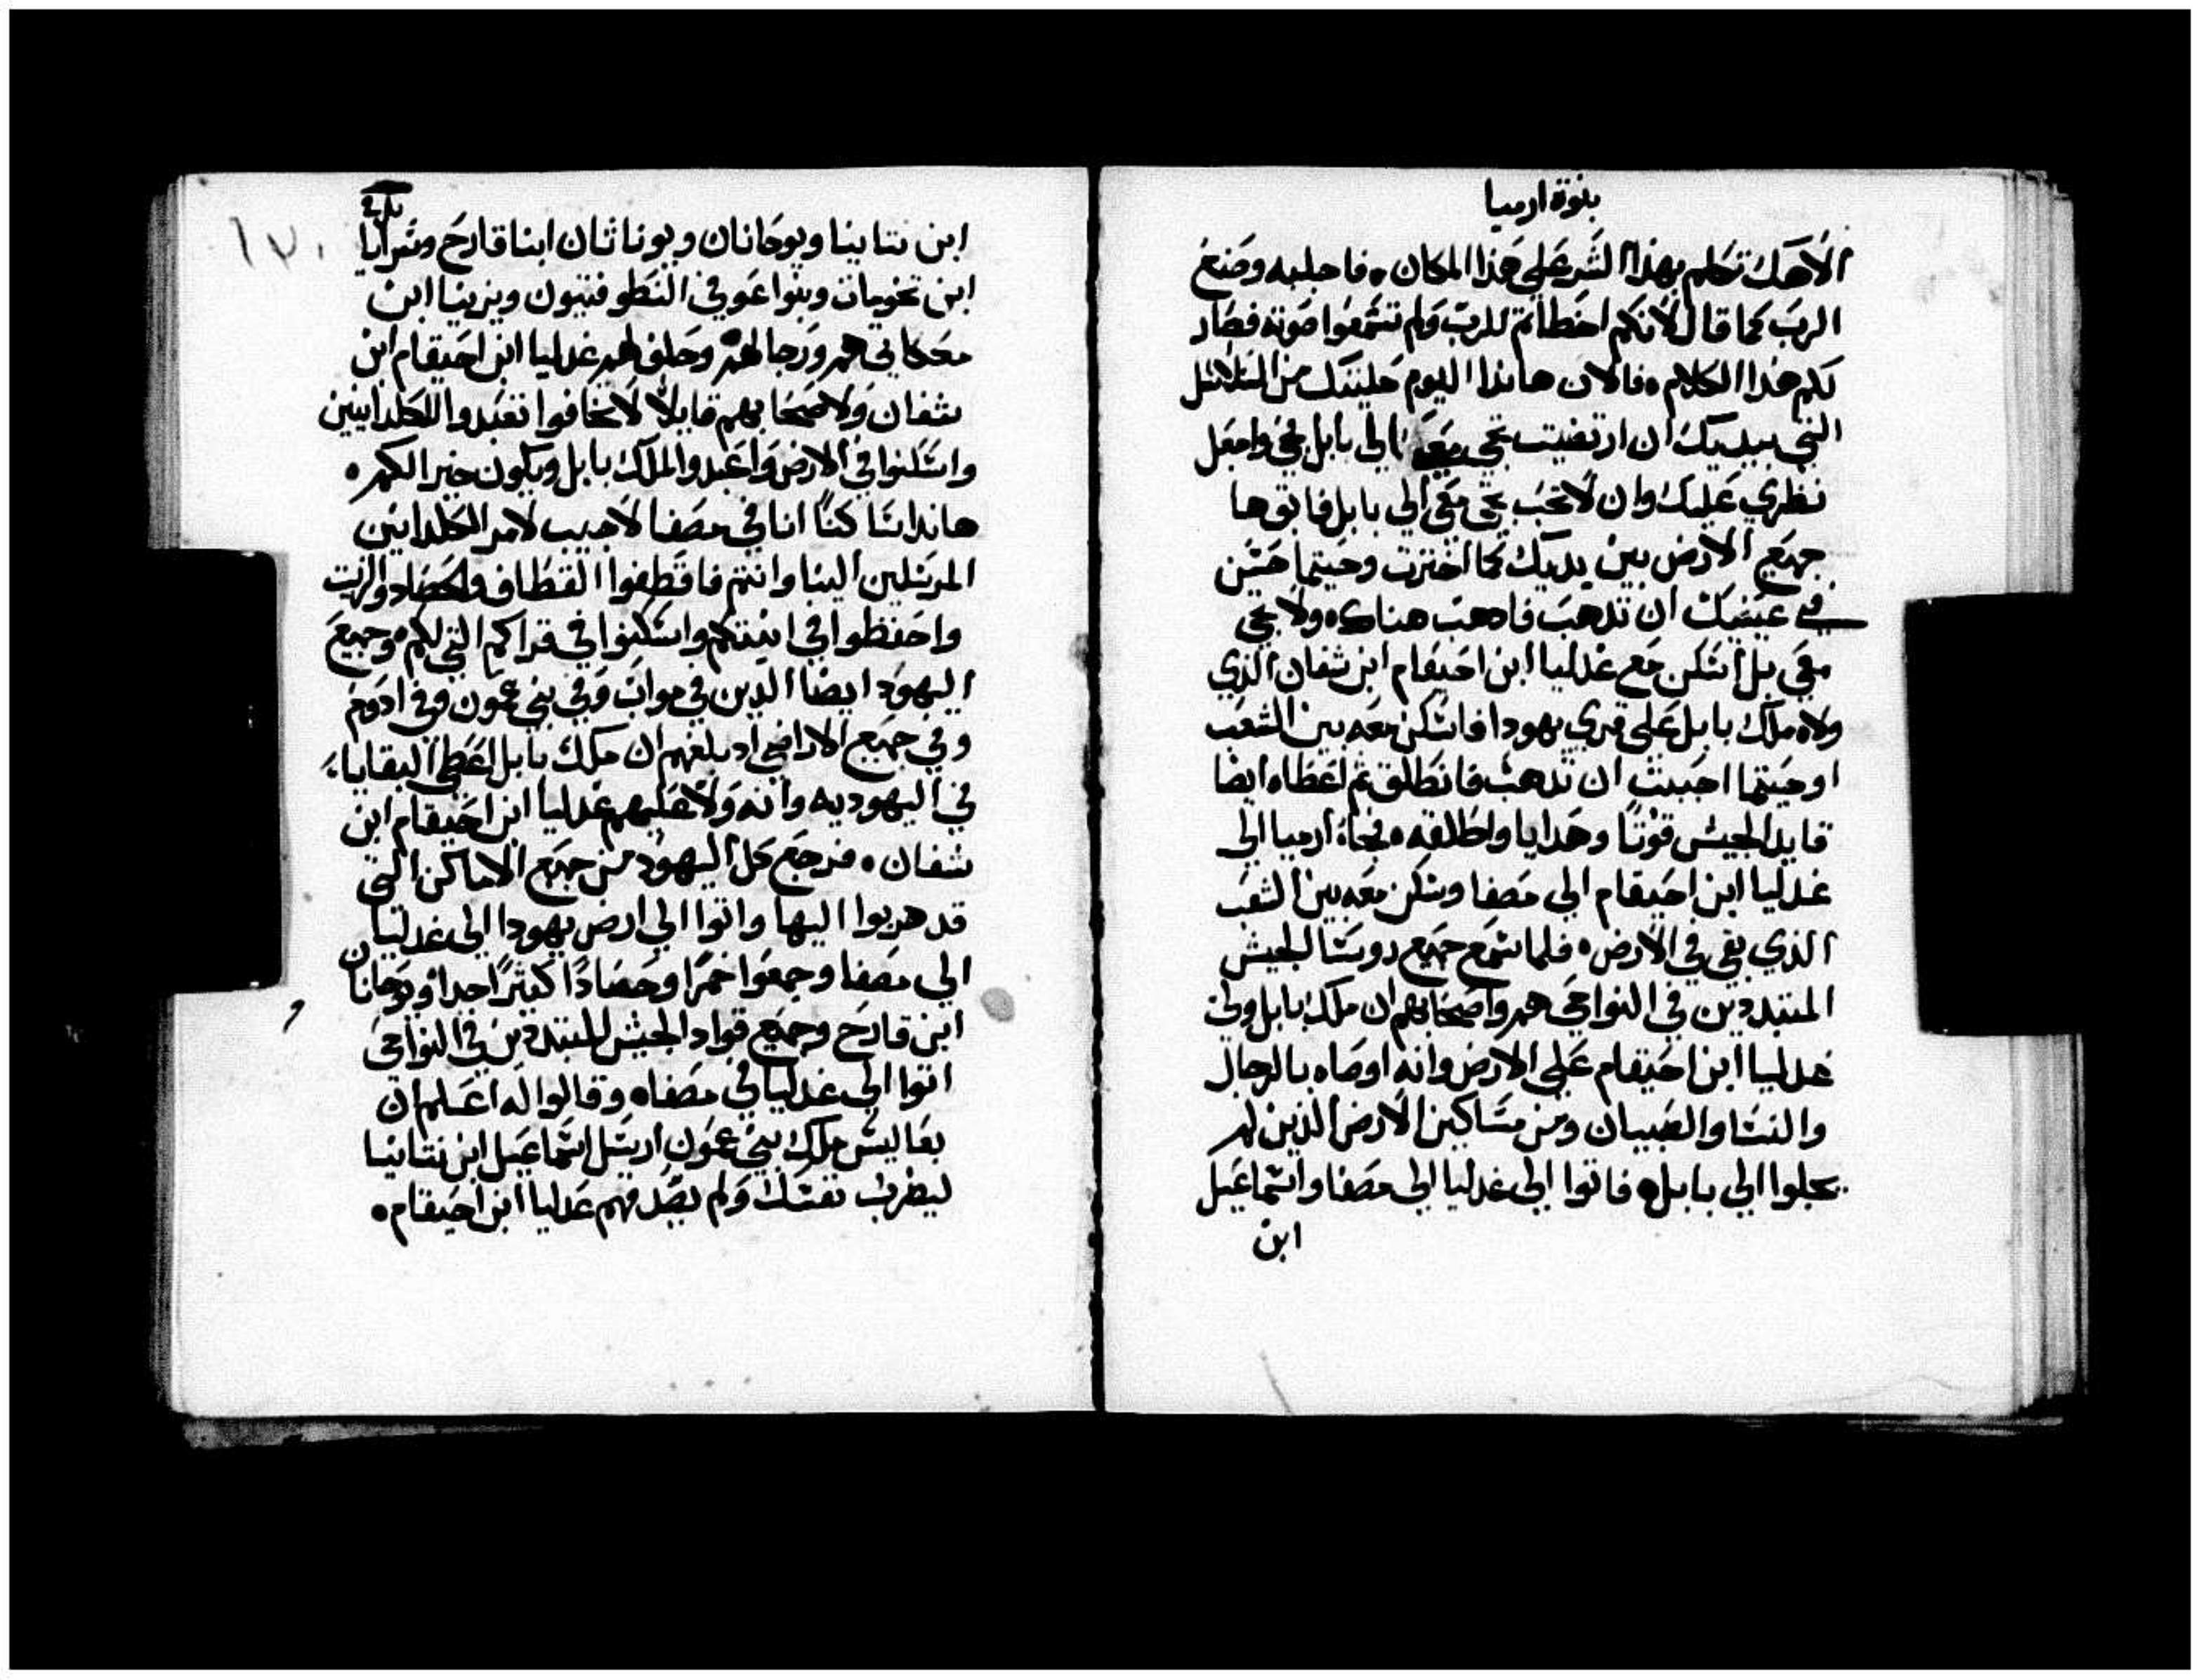 بنوة ارميا
الاهك تكلم بهذا الشر علي هذا المكان ٠ فاجلبه وصنع
الرب كما قال لانكم اخطاتم للرب ولم تسمعوا صوته فصار
لكم هذا الكلام ٠ فالان هاندا اليوم حليتك من السلاسل
التي بيديك ان ارتضيت تجي معي الي بابل فجي واجعل
نظري عليك وان لا تحب تجي معي الي بابل فابق ها
جميع الارض بين يديك كما اخترت وحيتما حسن
في عينيك ان تدهب فادهب هناك ٠ ولا تجي
معي بل اسكن مع غدليا ابن احيقام ابن شفان الذي
ولاه ملك بابل علي قري يهودا فاسكن معه بين الشعب
اوحيتما احببت ان تدهب فانطلق تم اعطاه ايضا
قايد الجيش قوتا وهدايا واطلقه ٠ فجاء ارميا الي
غدليا ابن احيقام الي مصفا وسكن معه بين الشعب
الذي بقي في الارض ٠ فلما سمع جميع روسا الجيش
المتبددين في النواحي هم واصحابهم ان ملك بابل ولي
غدليا ابن احيقام علي الارض وانه اوصاه بالرجال
والنسا والصبيان ومن مساكين الارض الذين لم
يجلوا الي بابل ٠ فاتوا الي غدليا الي مصفا واسماعيل
ابن
ابن نتانيا ويوحانان ويوناثان ابنا قارح وسرايا
ابن تخومات وبنوا عوفي النطوفتيون ويزنيا ابن
معكاتي هم ورجالهم ٠ وحلف لهم غدليا ابن احيقام ابن
شفان ولاصحابهم قايلا لا تخافوا تعبدوا للكلدانيين
واسكنوا في الارض واعبدوا لملك بابل ويكون خير الكم ٠
هاندا ساكنا انا في مصفا لاجيب لامر الكلدانين
المرسلين الينا وانتم فاقطفوا القطاف والحصاد والزيت
واحفظوا في انيتكم واسكنوا في قراكم التي لكم ٠ وجميع
اليهود ايضا الدين في مواب وفي بني عمون وفي ادوم
وفي جميع الاراضي اد بلغهم ان ملك بابل اعطي البقايا
في اليهوديه وانه ولا عليهم غدليا ابن احيقام ابن
شفان ٠ فرجع كل اليهود من جميع الاماكن التي
قد هربوا اليها واتوا الي ارض يهودا الي غدليا
الي مصفا وجمعوا خمرا وحصادا كثيرا جدا ويوحانان
ابن قارح وجميع قواد الجيش المتبددين في النواحي
اتوا الي غدليا في مصفاه وقالوا له اعلم ان
بعاليس ملك بني عمون ارسل اسماعيل ابن نتانيا
ليضرب نفسك ولم يصدقهم غدليا ابن احيقام ٠